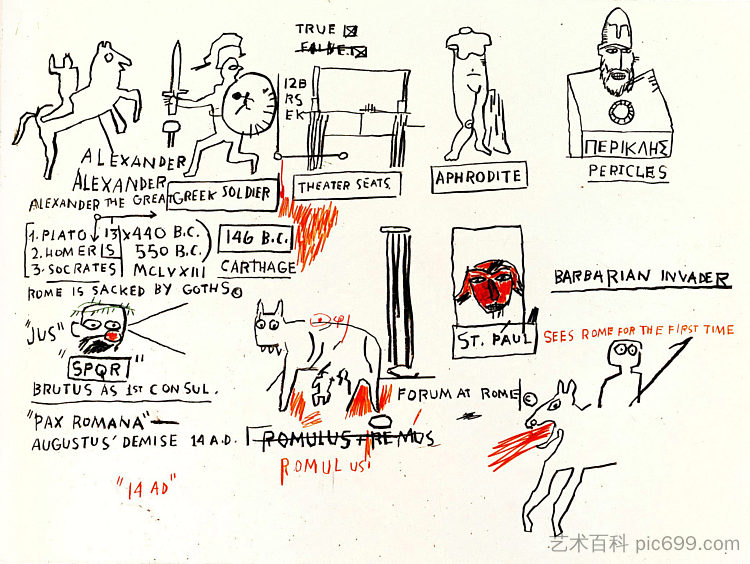 TRUE
FALSE
12B
RS
EK
ALEXANDER
ALEXANDER
ALEXANDER THE GREAT
GREEK SOLDIER
THEATER SEATS
APHRODITE
ΠΕΡΙΚΛΗΣ
PERICLES
1. PLATO 13 X440 B.C.
2. HOMER IS 550 B.C.
3. SOCRATES MCLVXIII
146 B.C.
CARTHAGE
ROME IS SACKED BY GOTHS ©
"JUS"
"SPQR"
BRUTUS AS 1ST CONSUL.
"PAX ROMANA"
AUGUSTUS' DEMISE 14 A.D.
"14 AD"
ROMULUS + REMUS
ROMULUS
FORUM AT ROME ©
ST. PAUL
BARBARIAN INVADER
SEES ROME FOR THE FIRST TIME
艺术百科 pic699.com